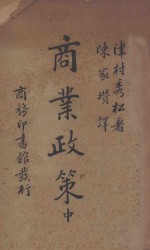 津村秀松著
陳家瓚譯
商業政策 中
商務印書館發行